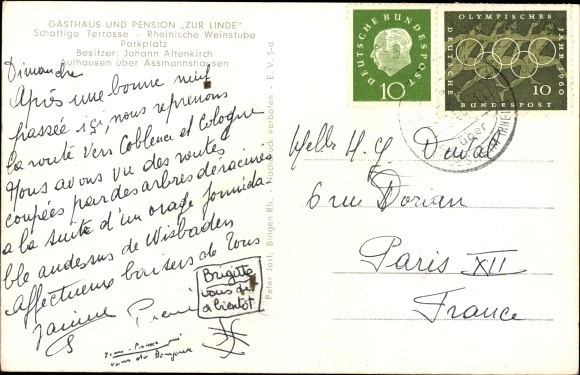 GASTHAUS UND PENSION „ZUR LINDE"
Schattige Terrasse - Rheinische Weinstube
Parkplatz
Besitzer: Johann Altenkirch
Aulhausen über Assmannshausen
Dimanche
Après une bonne nuit
passée ici, nous reprenons
la route vers Coblence et Cologne
Nous avons vu des routes
coupées par des arbres déracinés
a la suite d'un orage formida
ble audessus de Wisbaden
affectueux baisers de Tous
Janine Pierre
Brigitte
vous dit
a bientot
Jean-Pierre
vous dit Bonjour
Peter Jost, Bingen Rh. Nachdruck verboten - E. V. 5-d
DEUTSCHE BUNDESPOST
10
OLYMPISCHES
JAHR 1960
DEUTSCHE
BUNDESPOST
10
über
Duval
6 rue Dorian
Paris XII
France